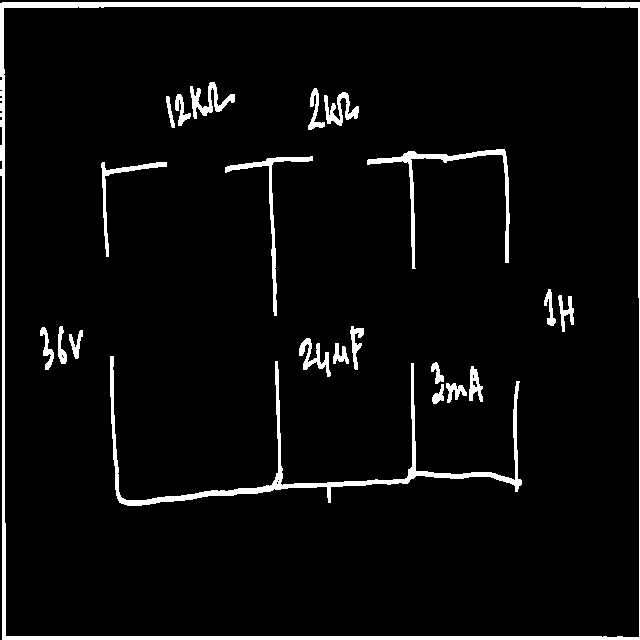 12KΩ
2kΩ
36V
24μF
1H